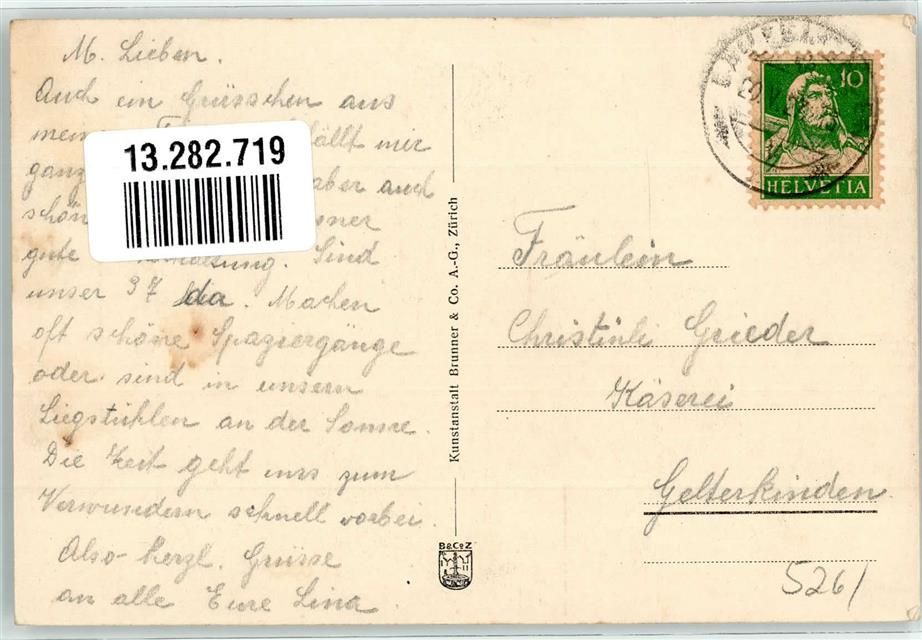 M. Lieben.
Auch ein Grüsschen aus
mir
ganz aber auch
schön
gute Sind
unser 37 da. Machen
oft schöne Spaziergänge
oder sind in unsern
Liegstühlen an der Sonne.
Die Zeit geht uns zum
Verwundern schnell vorbei.
Also herzl. Grüsse
an alle Eure Lina.
13.282.719
Kunstanstalt Brunner & Co. A.-G., Zürich
B&CoZ
10
HELVETIA
Fräulein
Christinli Grieder
Käserei
Gelterkinden
5261